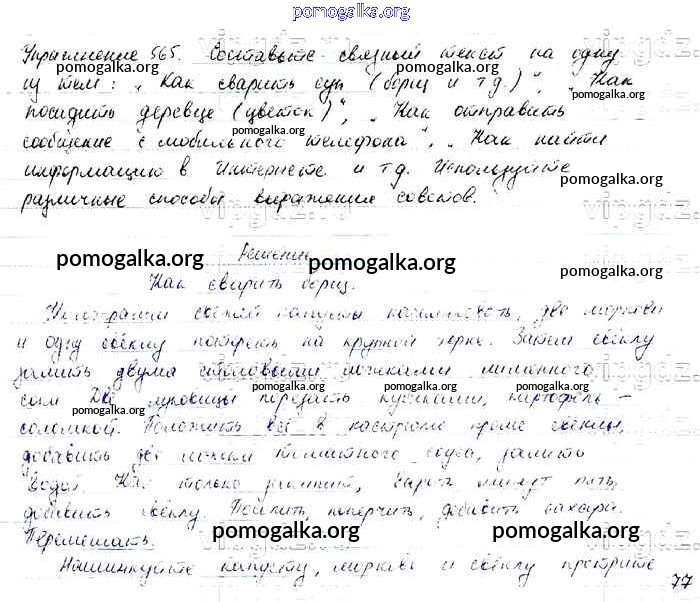 pomogalka.org
Упражнение 565. Составьте связный текст на одну
из тем: „Как сварить суп (борщ и т.д.)“, „Как
pomogalka.org pomogalka.org
посадить деревце (цветок)“, „Как отправить
pomogalka.org
сообщение с мобильного телефона“, „Как найти
информацию в Интернете и т.д. Используйте
pomogalka.org
различные способы выражения советов.
Решение
pomogalka.org pomogalka.org
pomogalka.org
Как сварить борщ.
свежей капусты нашинковать, две моркови
и одну свёклу потереть на крупной терке. Затем свёклу
залить двумя столовыми ложками лимонного
pomogalka.org pomogalka.org
сока Две луковицы порезать кусочками, картофель –
pomogalka.org
соломкой. Положить всё в кастрюлю кроме свёклы,
добавить две ложки томатного соуса, залить
водой. Как только закипит, варить минут пять,
добавить свёклу. Посолить, поперчить, добавить сахара.
Перемешать.
pomogalka.org pomogalka.org
Нашинкуйте капусту, морковь и свёклу протрите
77